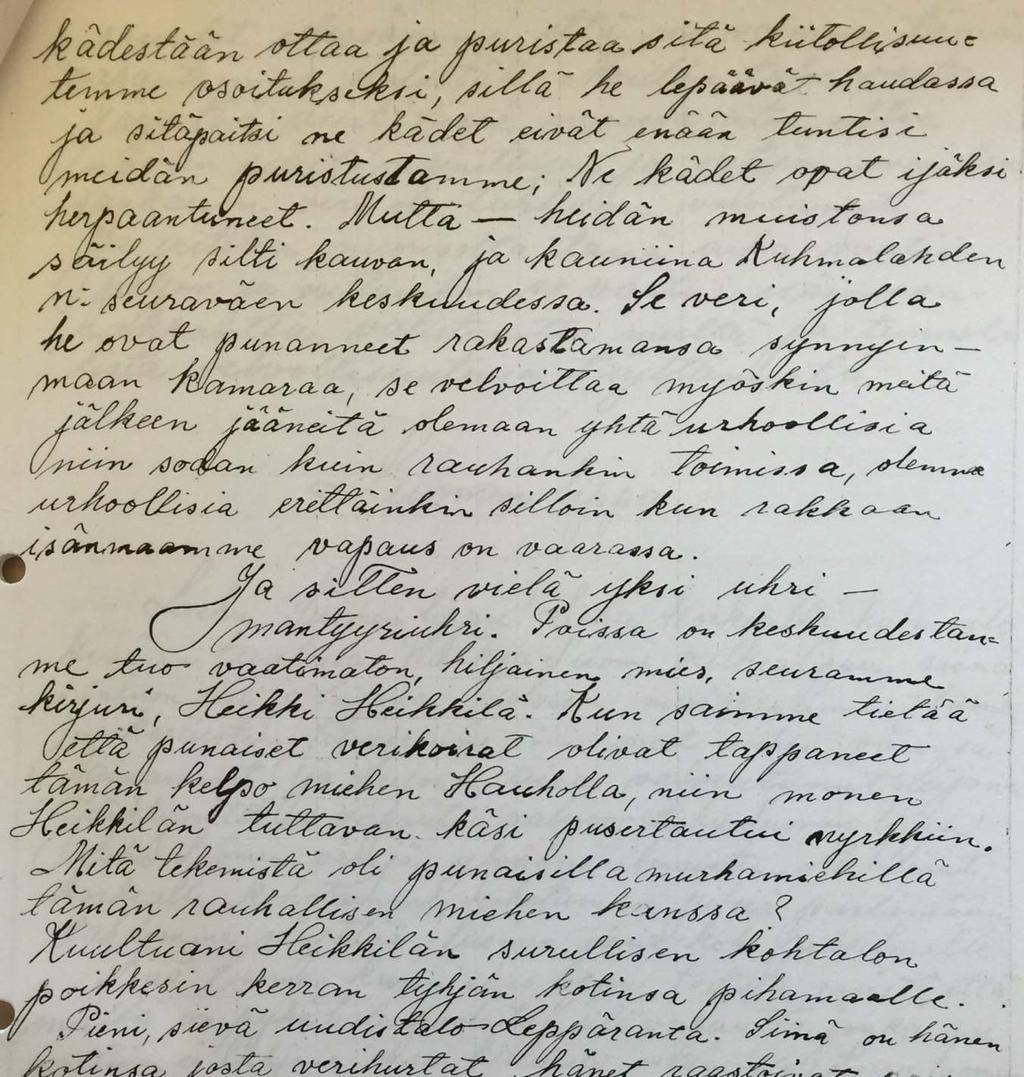 kädestään ottaa ja puristaa sitä kiitollisuu=
temme osoitukseksi, sillä he lepäävät haudassa
ja sitäpaitsi ne kädet eivät enään tuntisi
meidän puristustamme; Ne kädet ovat ijäksi
herpaantuneet. Mutta — heidän muistonsa
säilyy silti kauvan, ja kauniina Kuhmalahden
n: seuraväen keskuudessa. Se veri, jolla
he ovat punanneet rakastamansa synnyin-
maan kamaraa, se velvoittaa myöskin meitä
jälkeen jääneitä olemaan yhtä urhoollisia
niin sodan kuin rauhankin toimissa, olemme
urhoollisia erittäinkin silloin kun rakkaan
isänmaamme vapaus on vaarassa.
Ja sitten vielä yksi uhri —
mantyyriuhri. Poissa on keskuudestam=
me tuo vaatimaton, hiljainen mies, seuramme
kirjuri, Heikki Heikkilä. Kun saimme tietää
että punaiset verikoirat olivat tappaneet
tämän kelpo miehen Hauholla, niin monen
Heikkilän tuttavan käsi pusertautui nyrkkiin.
Mitä tekemistä oli punaisilla murhamiehillä
tämän rauhallisen miehen kanssa?
Kuultuani Heikkilän surullisen kohtalon
poikkesin kerran tyhjän kotinsa pihamaalle.
Pieni, sievä uudistalo Leppäranta. Siinä on hänen
kotinsa josta verihurtat hänet raastoivat